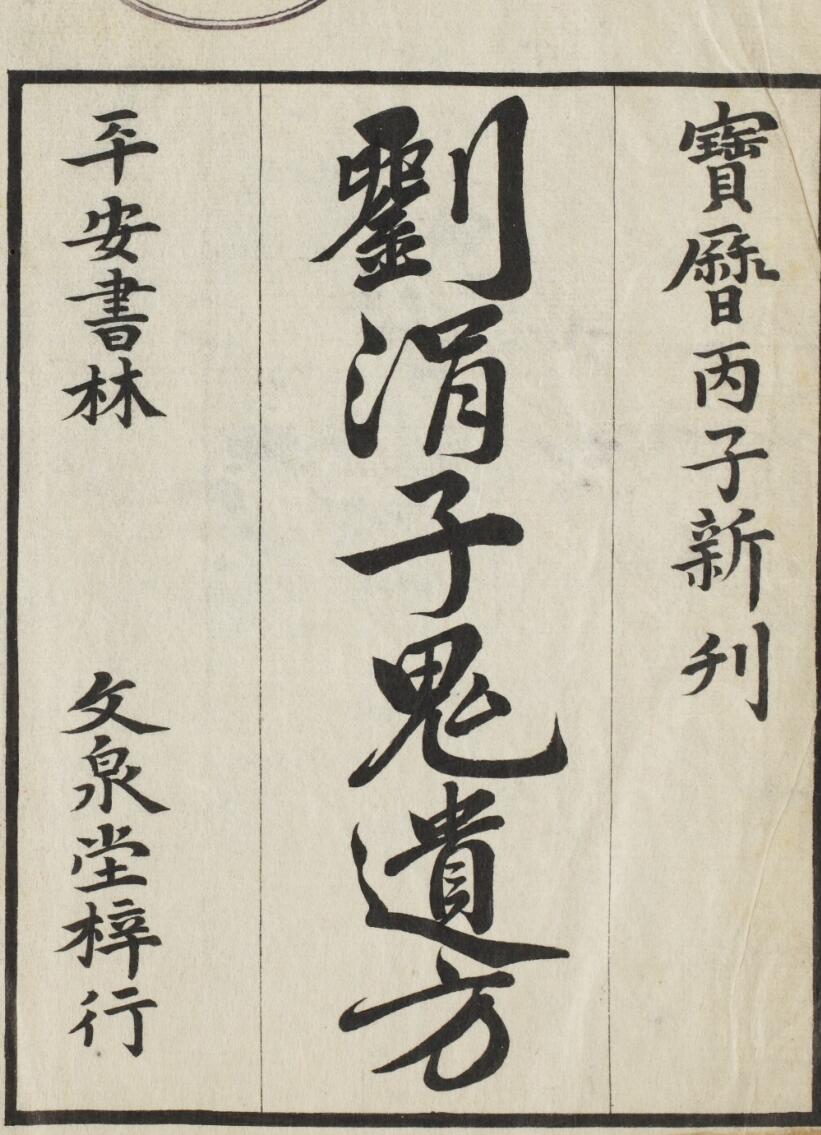 寶曆丙子新刊
劉涓子鬼遺方
平安書林
文泉堂梓行